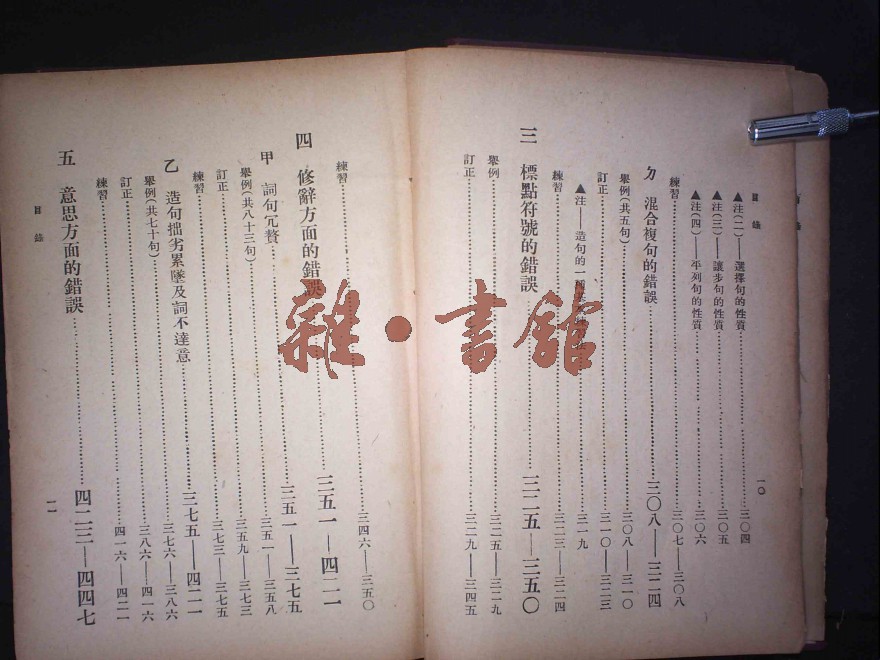 目錄
一〇
▲注(二)——選擇句的性質……三〇四
▲注(三)——讓步句的性質……三〇五
▲注(四)——平列句的性質……三〇六
練習……三〇七——三〇八
ㄉ 混合複句的錯誤……三〇八——三二四
舉例(共五句)……三〇八——三一〇
訂正……三一〇——三二三
▲注——造句的一……三一九
練習……三二三——三二四
三 標點符號的錯誤……三二五——三五〇
舉例……三二五——三二九
訂正……三二九——三四五
練習……三四六——三五〇
四 修辭方面的錯誤……三五一——四二一
甲 詞句冗贅……三五一——三七五
舉例(共八十三句)……三五一——三五八
訂正……三五九——三七三
練習……三七三——三七五
乙 造句拙劣累墜及詞不達意……三七五——四二一
舉例(共七十句)……三七六——三八六
訂正……三八六——四一六
練習……四一六——四二一
五 意思方面的錯誤……四二二——四四七
目錄
一一
雜·書館